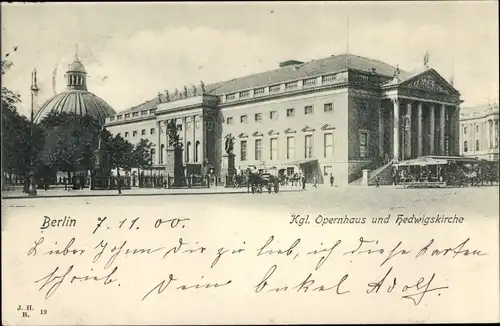 Berlin 7.11.00. Kgl. Opernhaus und Hedwigskirche
Lieber John, die zu lieb, ich diese Karten
schrieb. Dein Onkel Adolf.
J. H.
B. 19